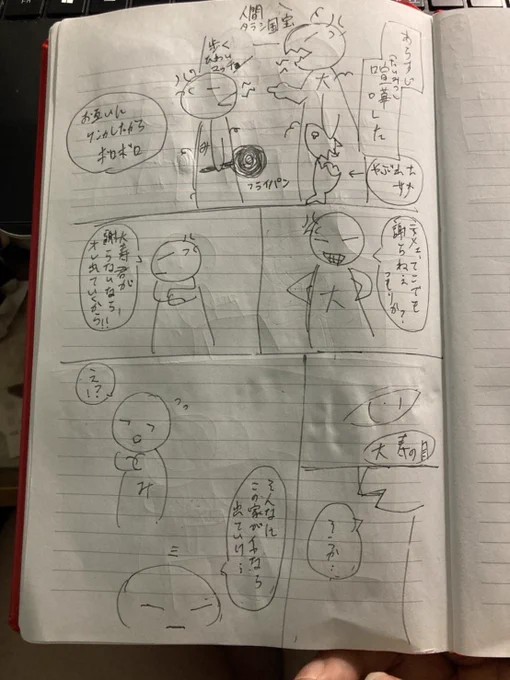 あらすじ
喧嘩した
人間
タラン国宝
歩く
お互いに
ケンカしたから
ボロボロ
フライパン
大
み
テメェ、てこでも
謝らねぇ
つもりか?
大
大寿君が
謝らないなら、
オレ出ていくから!!
大寿の目
そうか…
そんなに
この家がイヤなら
出ていけ…
え!?
み